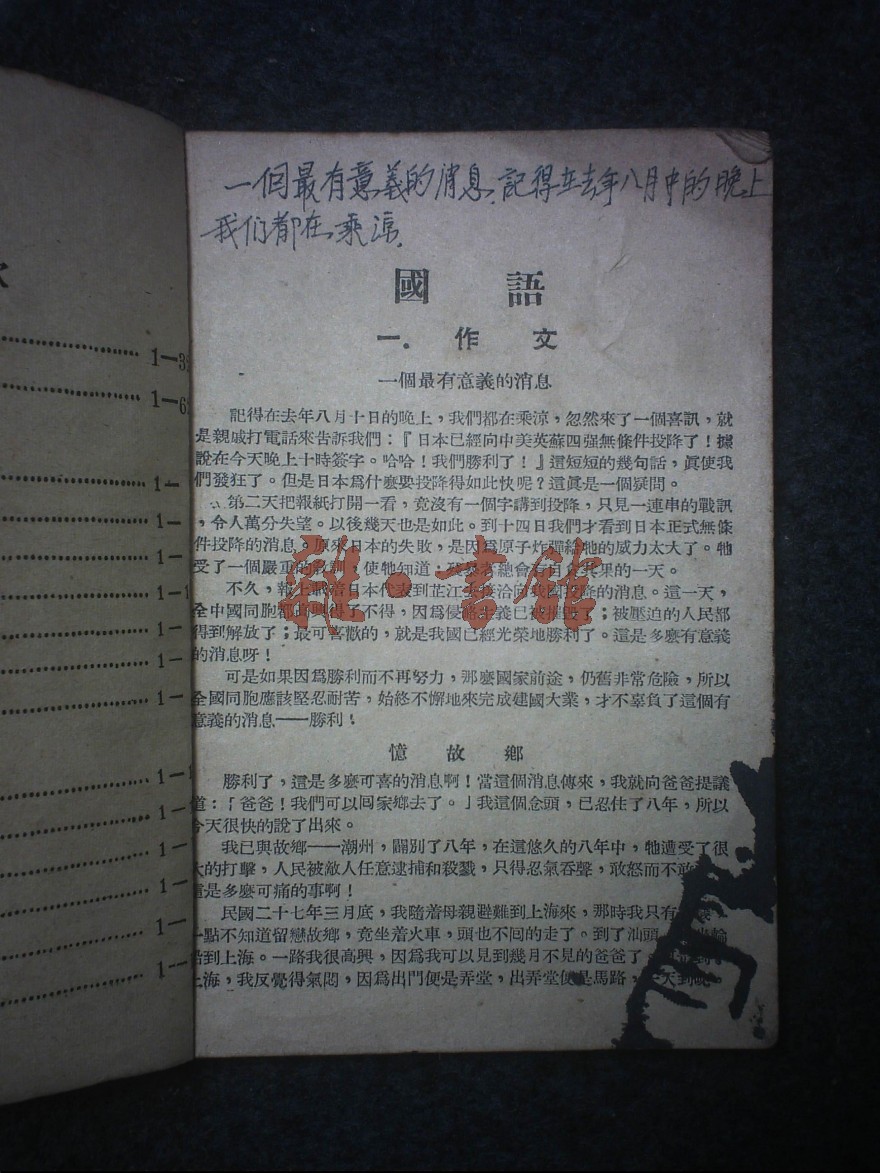 一個最有意義的消息.記得在去年八月中的晚上
我们都在乘凉.
國語
一．作文
一個最有意義的消息
記得在去年八月十日的晚上，我們都在乘涼，忽然來了一個喜訊，就
是親戚打電話來告訴我們：『日本已經向中美英蘇四强無條件投降了！據
說在今天晚上十時簽字。哈哈！我們勝利了！』這短短的幾句話，眞使我
們發狂了。但是日本爲什麽要投降得如此快呢？這眞是一個疑問。
第二天把報紙打開一看，竟沒有一個字講到投降，只見一連串的戰訊
，令人萬分失望。以後幾天也是如此。到十四日我們才看到日本正式無條
件投降的消息。原來日本的失敗，是因爲原子炸彈給牠的威力太大了。牠
受了一個嚴重的教訓，使牠知道：侵略者總會有自食其果的一天。
不久，報上載着日本代表到芷江去接洽向我國投降的消息。這一天，
全中國同胞都高興得了不得，因爲侵略主義已被摧毀了；被壓迫的人民都
得到解放了；最可喜歡的，就是我國已經光榮地勝利了。這是多麽有意義
的消息呀！
可是如果因爲勝利而不再努力，那麽國家前途，仍舊非常危險，所以
全國同胞應該堅忍耐苦，始終不懈地來完成建國大業，才不辜負了這個有
意義的消息——勝利！
憶故鄉
勝利了，這是多麽可喜的消息啊！當這個消息傳來，我就向爸爸提議
道：「爸爸！我們可以囘家鄉去了。」我這個念頭，已忍住了八年，所以
今天很快的說了出來。
我已與故鄉——潮州，闊別了八年，在這悠久的八年中，牠遭受了很
大的打擊，人民被敵人任意逮捕和殺戮，只得忍氣吞聲，敢怒而不敢
這是多麽可痛的事啊！
民國二十七年三月底，我隨着母親避難到上海來，那時我只有
一點不知道留戀故鄉，竟坐着火車，頭也不囘的走了。到了汕頭
船到上海。一路我很高興，因爲我可以見到幾月不見的爸爸了
上海，我反覺得氣悶，因爲出門便是弄堂，出弄堂便是馬路，
雜·書館
1—3
1—6
1—
1—
1—
1—
1—1
1—
1—
1—
1—1
1—
1—
1—
1—